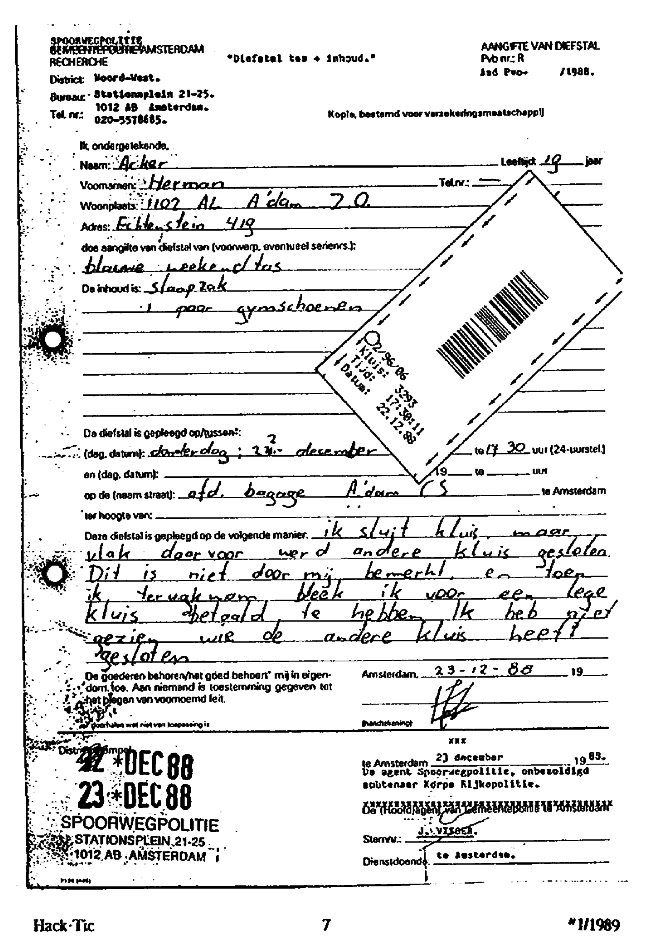 SPOORWEGPOLITIE
GEMEENTEPOLITIE AMSTERDAM
RECHERCHE
"Diefstal tas + inhoud."
AANGIFTE VAN DIEFSTAL
Pvb nr.: R
Asd Pwo- /1988.
District: Noord-West.
Bureau: Stationsplein 21-25.
1012 AB Amsterdam.
Tel. nr.: 020-5578685.
Kopie, bestemd voor verzekeringsmaatschappij
Ik, ondergetekende,
Naam: Acker Leeftijd: 19 jaar
Voornamen: Herman Tel.nr.: —
Woonplaats: 1102 AL A'dam Z.O.
Adres: Echtenstein 419
doe aangifte van diefstal van (voorwerp, eventueel serienrs.):
blauwe weekendtas
De inhoud is: slaapzak
1 paar gymschoenen
02/96/06
Kluis: 3293
Tijd: 17:30:11
Datum: 22.12.88
De diefstal is gepleegd op/tussen*:
(dag, datum): donderdag; 22 december te 17 30 uur (24-uurstel.)
en (dag, datum): 19 te uur
op de (naam straat): afd. bagage A'dam CS te Amsterdam
ter hoogte van:
Deze diefstal is gepleegd op de volgende manier. ik sluit kluis, maar
vlak daarvoor werd andere kluis gesloten
Dit is niet door mij bemerkt, en toen
ik terugkwam bleek ik voor een lege
kluis betaald te hebben Ik heb niet
gezien wie de andere kluis heeft
gesloten
De goederen behoren/het goed behoort* mij in eigen-
dom toe. Aan niemand is toestemming gegeven tot
het plegen van voornoemd feit.
Amsterdam, 23-12-88 19
(handtekening)
* doorhalen wat niet van toepassing is
Districtsstempel
22 *DEC 88
23 *DEC 88
SPOORWEGPOLITIE
STATIONSPLEIN 21-25
1012 AB AMSTERDAM
xxx
te Amsterdam 23 december 1988.
De agent Spoorwegpolitie, onbezoldigd
ambtenaar Korps Rijkspolitie.
De (Hoofd)agent van Gemeentepolitie te Amsterdam
J. VISSER.
Stamnr.:
Dienstdoende te Amsterdam.
Hack-Tic
7
#1/1989